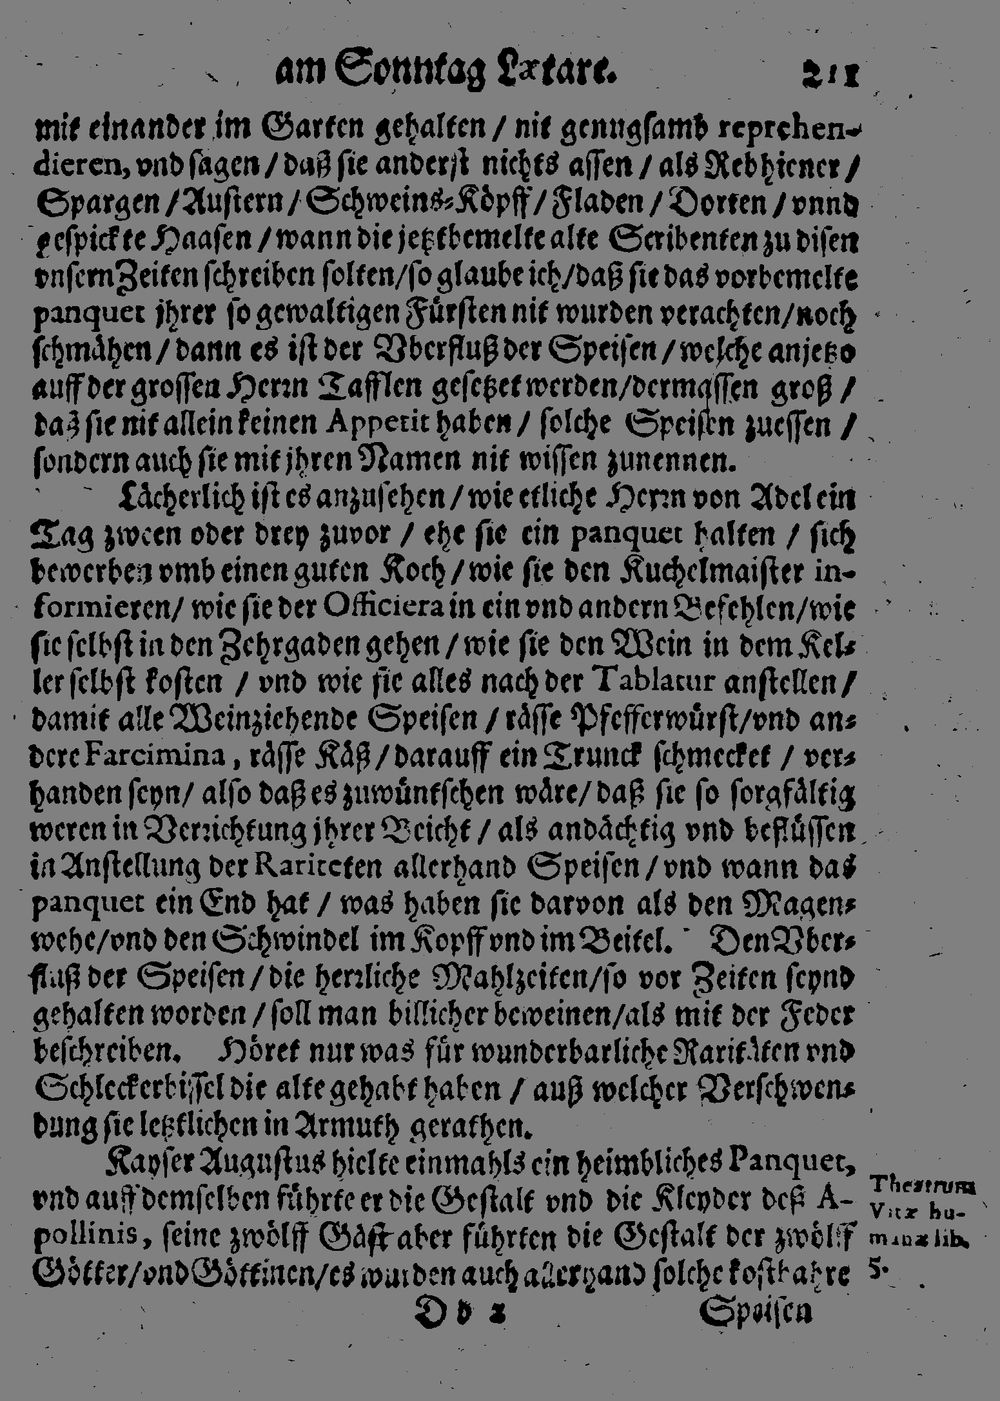 am Sonntag Lætare. 211
mit einander im Garten gehalten / nit genugsamb reprehen-
dieren, vnd sagen / daß sie anderst nichts assen / als Rebhiener /
Spargen / Austern / Schweins-Köpff / Fladen / Dorten / vnnd
gespickte Haasen / wann die jetztbemelte alte Scribenten zu disen
vnsern Zeiten schreiben solten / so glaube ich / daß sie das vorbemelte
panquet jhrer so gewaltigen Fürsten nit wurden verachten / noch
schmähen / dann es ist der Vberfluß der Speisen / welche anjetzo
auff der grossen Herrn Tafflen gesetzet werden / dermassen groß /
daß sie nit allein keinen Appetit haben / solche Speisen zuessen /
sondern auch sie mit jhren Namen nit wissen zunennen.
Lächerlich ist es anzusehen / wie etliche Herrn von Adel ein
Tag zween oder drey zuvor / ehe sie ein panquet halten / sich
bewerben vmb einen guten Koch / wie sie den Kuchelmaister in-
formieren / wie sie der Officiera in ein vnd andern Befehlen / wie
sie selbst in den Zehrgaden gehen / wie sie den Wein in dem Kel-
ler selbst kosten / vnd wie sie alles nach der Tablatur anstellen /
damit alle Weinziehende Speisen / rässe Pfefferwürst / vnd an-
dere Farcimina, rässe Käß / darauff ein Trunck schmecket / ver-
handen seyn / also daß es zuwüntschen wäre / daß sie so sorgfältig
weren in Verrichtung jhrer Beicht / als andächtig vnd beflüssen
in Anstellung der Rariteten allerhand Speisen / vnd wann das
panquet ein End hat / was haben sie darvon als den Magen-
wehe / vnd den Schwindel im Kopff vnd im Beitel. Den Vber-
fluß der Speisen / die herrliche Mahlzeiten / so vor Zeiten seynd
gehalten worden / soll man billicher beweinen / als mit der Feder
beschreiben. Höret nur was für wunderbarliche Raritäten vnd
Schleckerbissel die alte gehabt haben / auß welcher Verschwen-
dung sie letztlichen in Armuth gerathen.
Kayser Augustus hielte einmahls ein heimbliches Panquet,
vnd auff demselben führte er die Gestalt vnd die Kleyder deß A-
pollinis, seine zwölff Gäst aber führten die Gestalt der zwölff
Götter / vnd Göttinen / es wurden auch allerhand solche kostbahre
Theatrum
Vitæ hu-
manæ lib.
5.
D d 2 Speisen